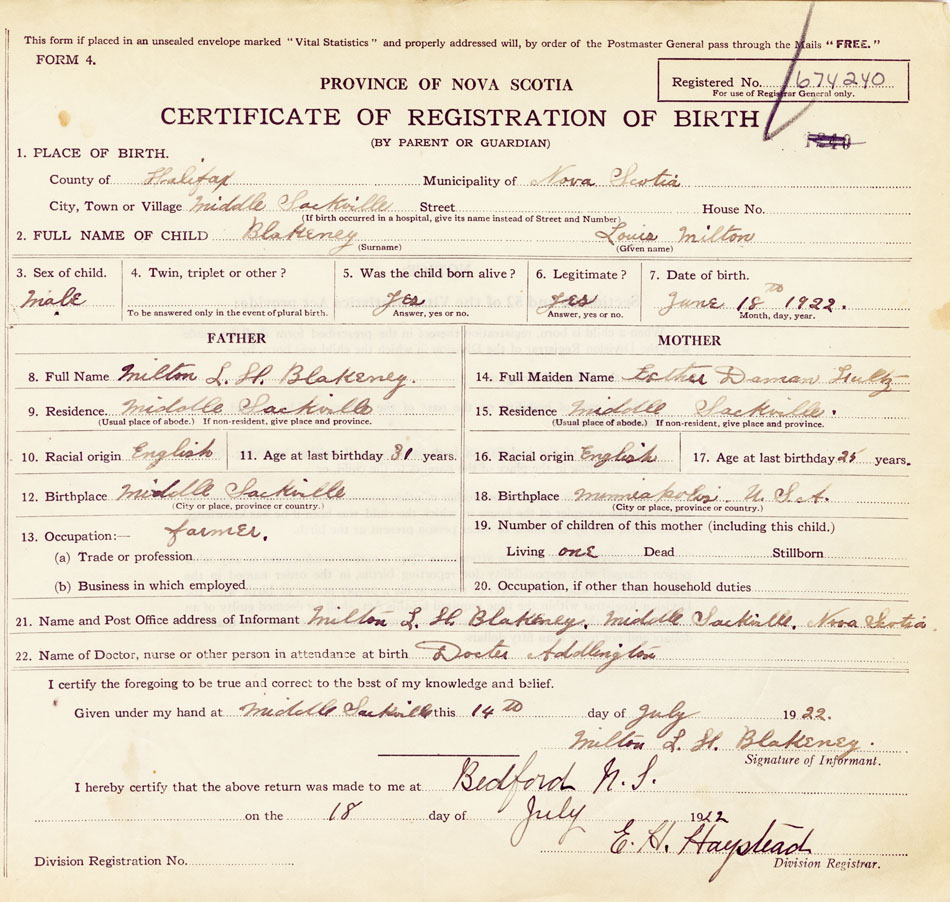 This form if placed in an unsealed envelope marked "Vital Statistics" and properly addressed will, by order of the Postmaster General pass through the Mails "FREE."
FORM 4.
PROVINCE OF NOVA SCOTIA
Registered No. 674240
For use of Registrar General only.
CERTIFICATE OF REGISTRATION OF BIRTH
(BY PARENT OR GUARDIAN)
1. PLACE OF BIRTH.
County of Halifax Municipality of Nova Scotia
City, Town or Village Middle Sackville Street House No.
(If birth occurred in a hospital, give its name instead of Street and Number)
2. FULL NAME OF CHILD Blakeney Louis Milton
(Surname) (Given name)
3. Sex of child. 4. Twin, triplet or other? 5. Was the child born alive? 6. Legitimate? 7. Date of birth.
Male yes yes June 18th 1922.
To be answered only in the event of plural birth. Answer, yes or no. Answer, yes or no. Month, day, year.
FATHER MOTHER
8. Full Name Milton L. H. Blakeney. 14. Full Maiden Name Esther Daman
9. Residence. Middle Sackville 15. Residence Middle Sackville.
(Usual place of abode.) If non-resident, give place and province. (Usual place of abode.) If non-resident, give place and province.
10. Racial origin English 11. Age at last birthday 31 years. 16. Racial origin English 17. Age at last birthday 25 years.
12. Birthplace Middle Sackville 18. Birthplace Minneapolis. U.S.A.
(City or place, province or country.) (City or place, province or country.)
13. Occupation:— farmer. 19. Number of children of this mother (including this child.)
(a) Trade or profession Living one Dead Stillborn
(b) Business in which employed 20. Occupation, if other than household duties
21. Name and Post Office address of Informant Milton L. H. Blakeney. Middle Sackville. Nova Scotia
22. Name of Doctor, nurse or other person in attendance at birth Docter Addlington
I certify the foregoing to be true and correct to the best of my knowledge and belief.
Given under my hand at Middle Sackville this 14th day of July 1922.
Milton L. H. Blakeney.
Signature of Informant.
I hereby certify that the above return was made to me at Bedford N.S.
on the 18 day of July 1922
E. H. Haystead
Division Registrar.
Division Registration No.